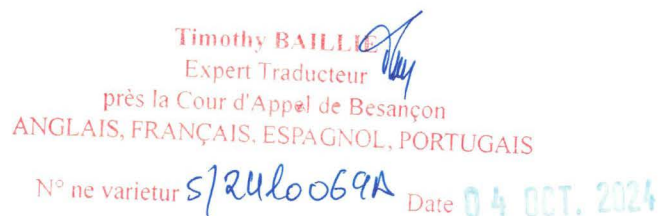 Timothy BAILLIE
Expert Traducteur
près la Cour d'Appel de Besançon
ANGLAIS, FRANÇAIS. ESPAGNOL, PORTUGAIS
N° ne varietur S/2410069A Date 04 OCT. 2024